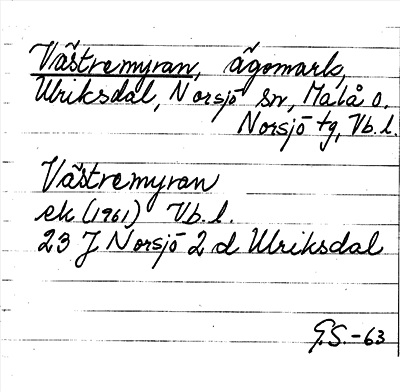 Västremyran, ägomark,
Ulriksdal, Norsjö sn, Malå o.
Norsjö tg, Vb.l.
Västremyran
ek (1961) Vb.l.
23 J Norsjö 2 d Ulriksdal
G.S.-63